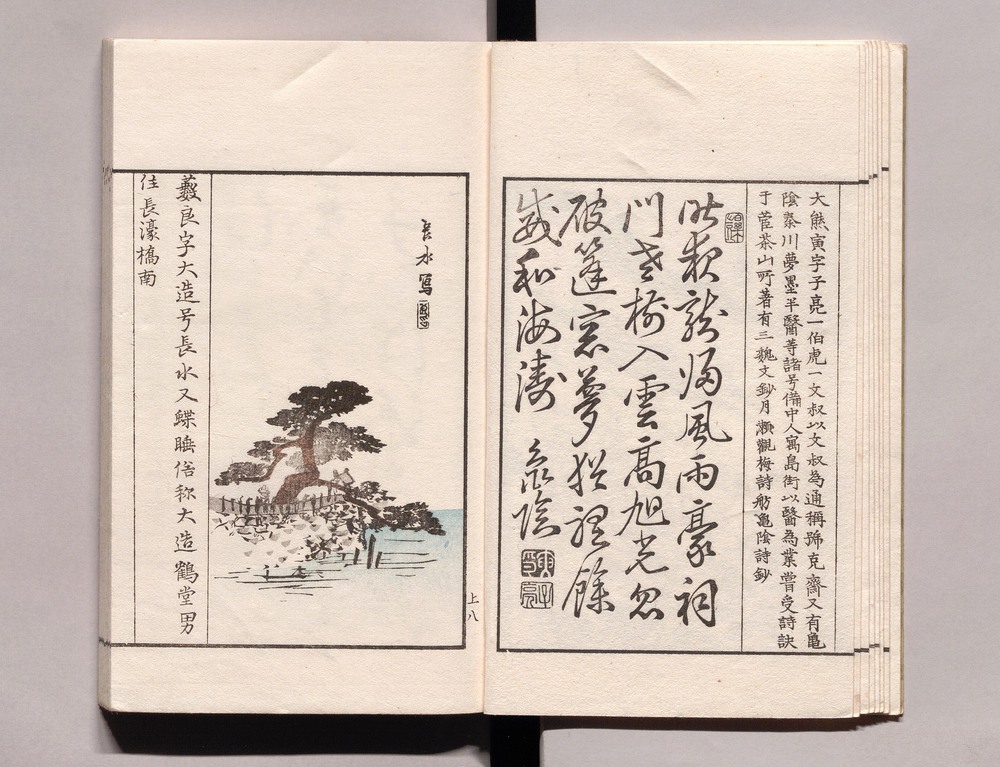 大熊寅字子亮一伯虎一文叔以文叔為通稱號克齋又有亀
陰秦川夢墨半醫等諸号備中人寓島街以醫為業嘗受詩訣
于菅茶山所著有三魏文鈔月瀬觀梅詩舫亀陰詩鈔
昨夜龍歸風雨豪祠
門老樹入雲高旭光忽
破篷窓夢猶認餘
威和海濤 龜陰
上八
長水寫
藪良字大造号長水又鰈睡俗称大造鶴堂男
住長濠橋南